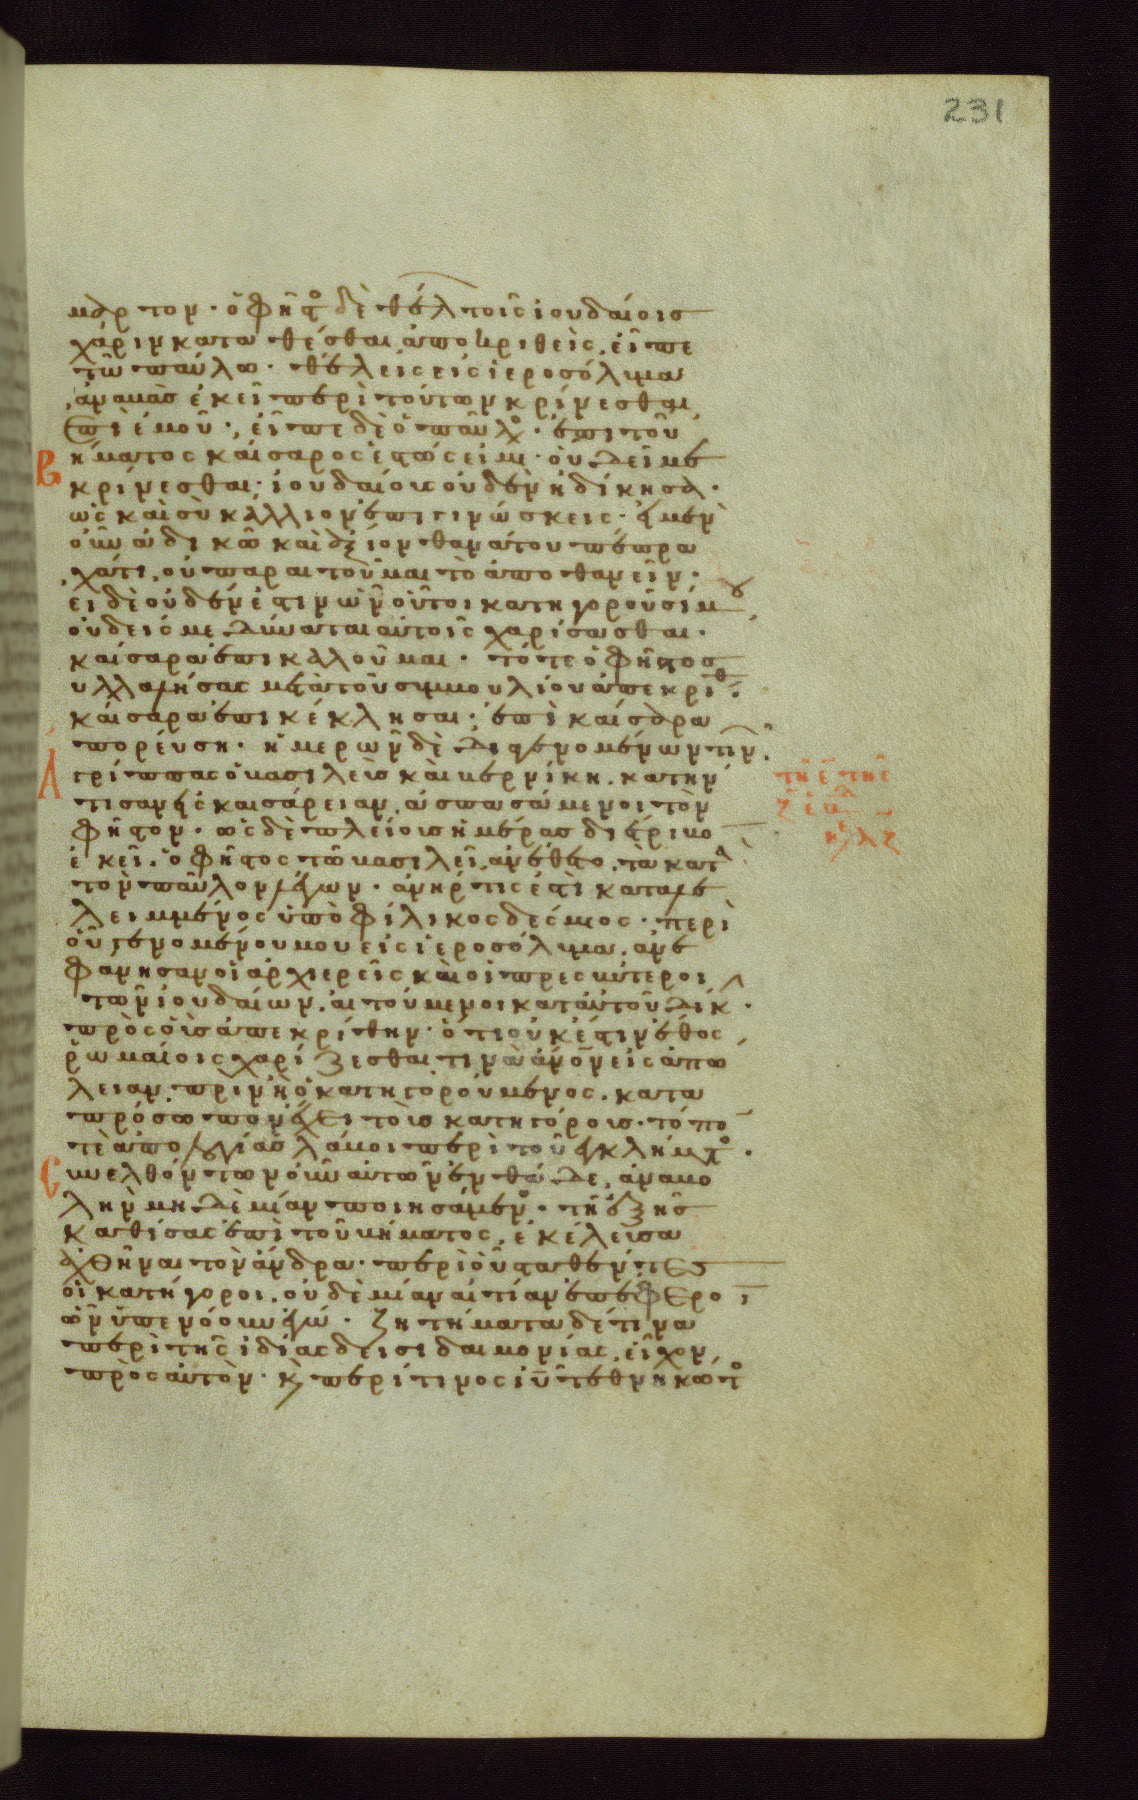 231
μαρτον· ὁ φῆστος δὲ θέλων τοῖς ἰουδαίοις
χάριν καταθέσθαι, ἀποκριθεὶς, εἶπε
τῶ παύλω· θέλεις εἰς ἱεροσόλυμα
ἀναβὰς ἐκεῖ περὶ τούτων κρίνεσθαι
ἐπὶ ἐμοῦ· εἶπε δὲ ὁ παῦλος· ἐπὶ τοῦ
βήματος καίσαρος ἑστώς εἰμι· οὗ δεῖ με
κρίνεσθαι· ἰουδαίους οὐδὲν ἠδίκησα·
ὡς καὶ σὺ κάλλιον ἐπιγινώσκεις· εἰ μὲν
οὖν ἀδικῶ καὶ ἄξιον θανάτου πέπρα
χά τι, οὐ παραιτοῦμαι τὸ ἀποθανεῖν·
εἰ δὲ οὐδέν ἐστιν ὧν οὗτοι κατηγοροῦσί μου,
οὐδείς με δύναται αὐτοῖς χαρίσασθαι·
καίσαρα ἐπικαλοῦμαι· τότε ὁ φῆστος
υλλαλήσας μετὰ τοῦ συμβουλίου ἀπεκρίθ·
καίσαρα ἐπικέκλησαι· ἐπὶ καίσαρα
πορεύση· ἡμερῶν δὲ διαγενομένων τινῶν·
Ἀγρίππας ὁ βασιλεὺς καὶ βερνίκη, κατήν
τισαν εἰς καισάρειαν, ἀσπασάμενοι τὸν
φῆστον· ὡς δὲ πλείοις ἡμέρας διέτριβο
ἐκεῖ, ὁ φῆστος τῶ βασιλεῖ ἀνέθετο, τὰ κατὰ
τὸν παῦλον λέγων· ἀνήρ τις ἐστὶ καταλε
λειμμένος ὑπὸ φίλικος δέσμιος· περὶ
οὗ γενομένου μου εἰς ἱεροσόλυμα, ἀνε
φάνησαν οἱ ἀρχιερεῖς καὶ οἱ πρεσβύτεροι
τῶν ἰουδαίων, αἰτούμενοι κατ αὐτοῦ δίκ·
πρὸς οὓς ἀπεκρίθην· ὅτι οὐκ ἔστιν ἔθος
ῥωμαίοις χαρίζεσθαι τινὰ ἄνον εἰς ἀπώ
λειαν, πρινὴ ὁ κατηγορούμενος, κατὰ
πρόσωπον ἔχει τοὺς κατηγόρους· τόπο
τὲ ἀπολογίας λάβοι περὶ τοῦ ἐγκλήματος·
Συνελθόντων οὖν αὐτῶν ἐνθάδε, ἀναβο
λὴν μηδεμίαν ποιησάμενος· τῆ ἑξῆς
καθίσας ἐπὶ τοῦ βήματος, ἐκέλευσα
ἀχθῆναι τὸν ἄνδρα· περὶ οὗ σταθέντες
οἱ κατήγοροι, οὐδεμίαν αἰτίαν ἐπέφερον
ὧν ὑπενόουν ἐγώ· ζητήματα δέ τινα
περὶ τῆς ἰδίας δεισιδαιμονίας, εἶχον
πρὸς αὐτὸν· κ περί τινος ιυ τεθνηκότος